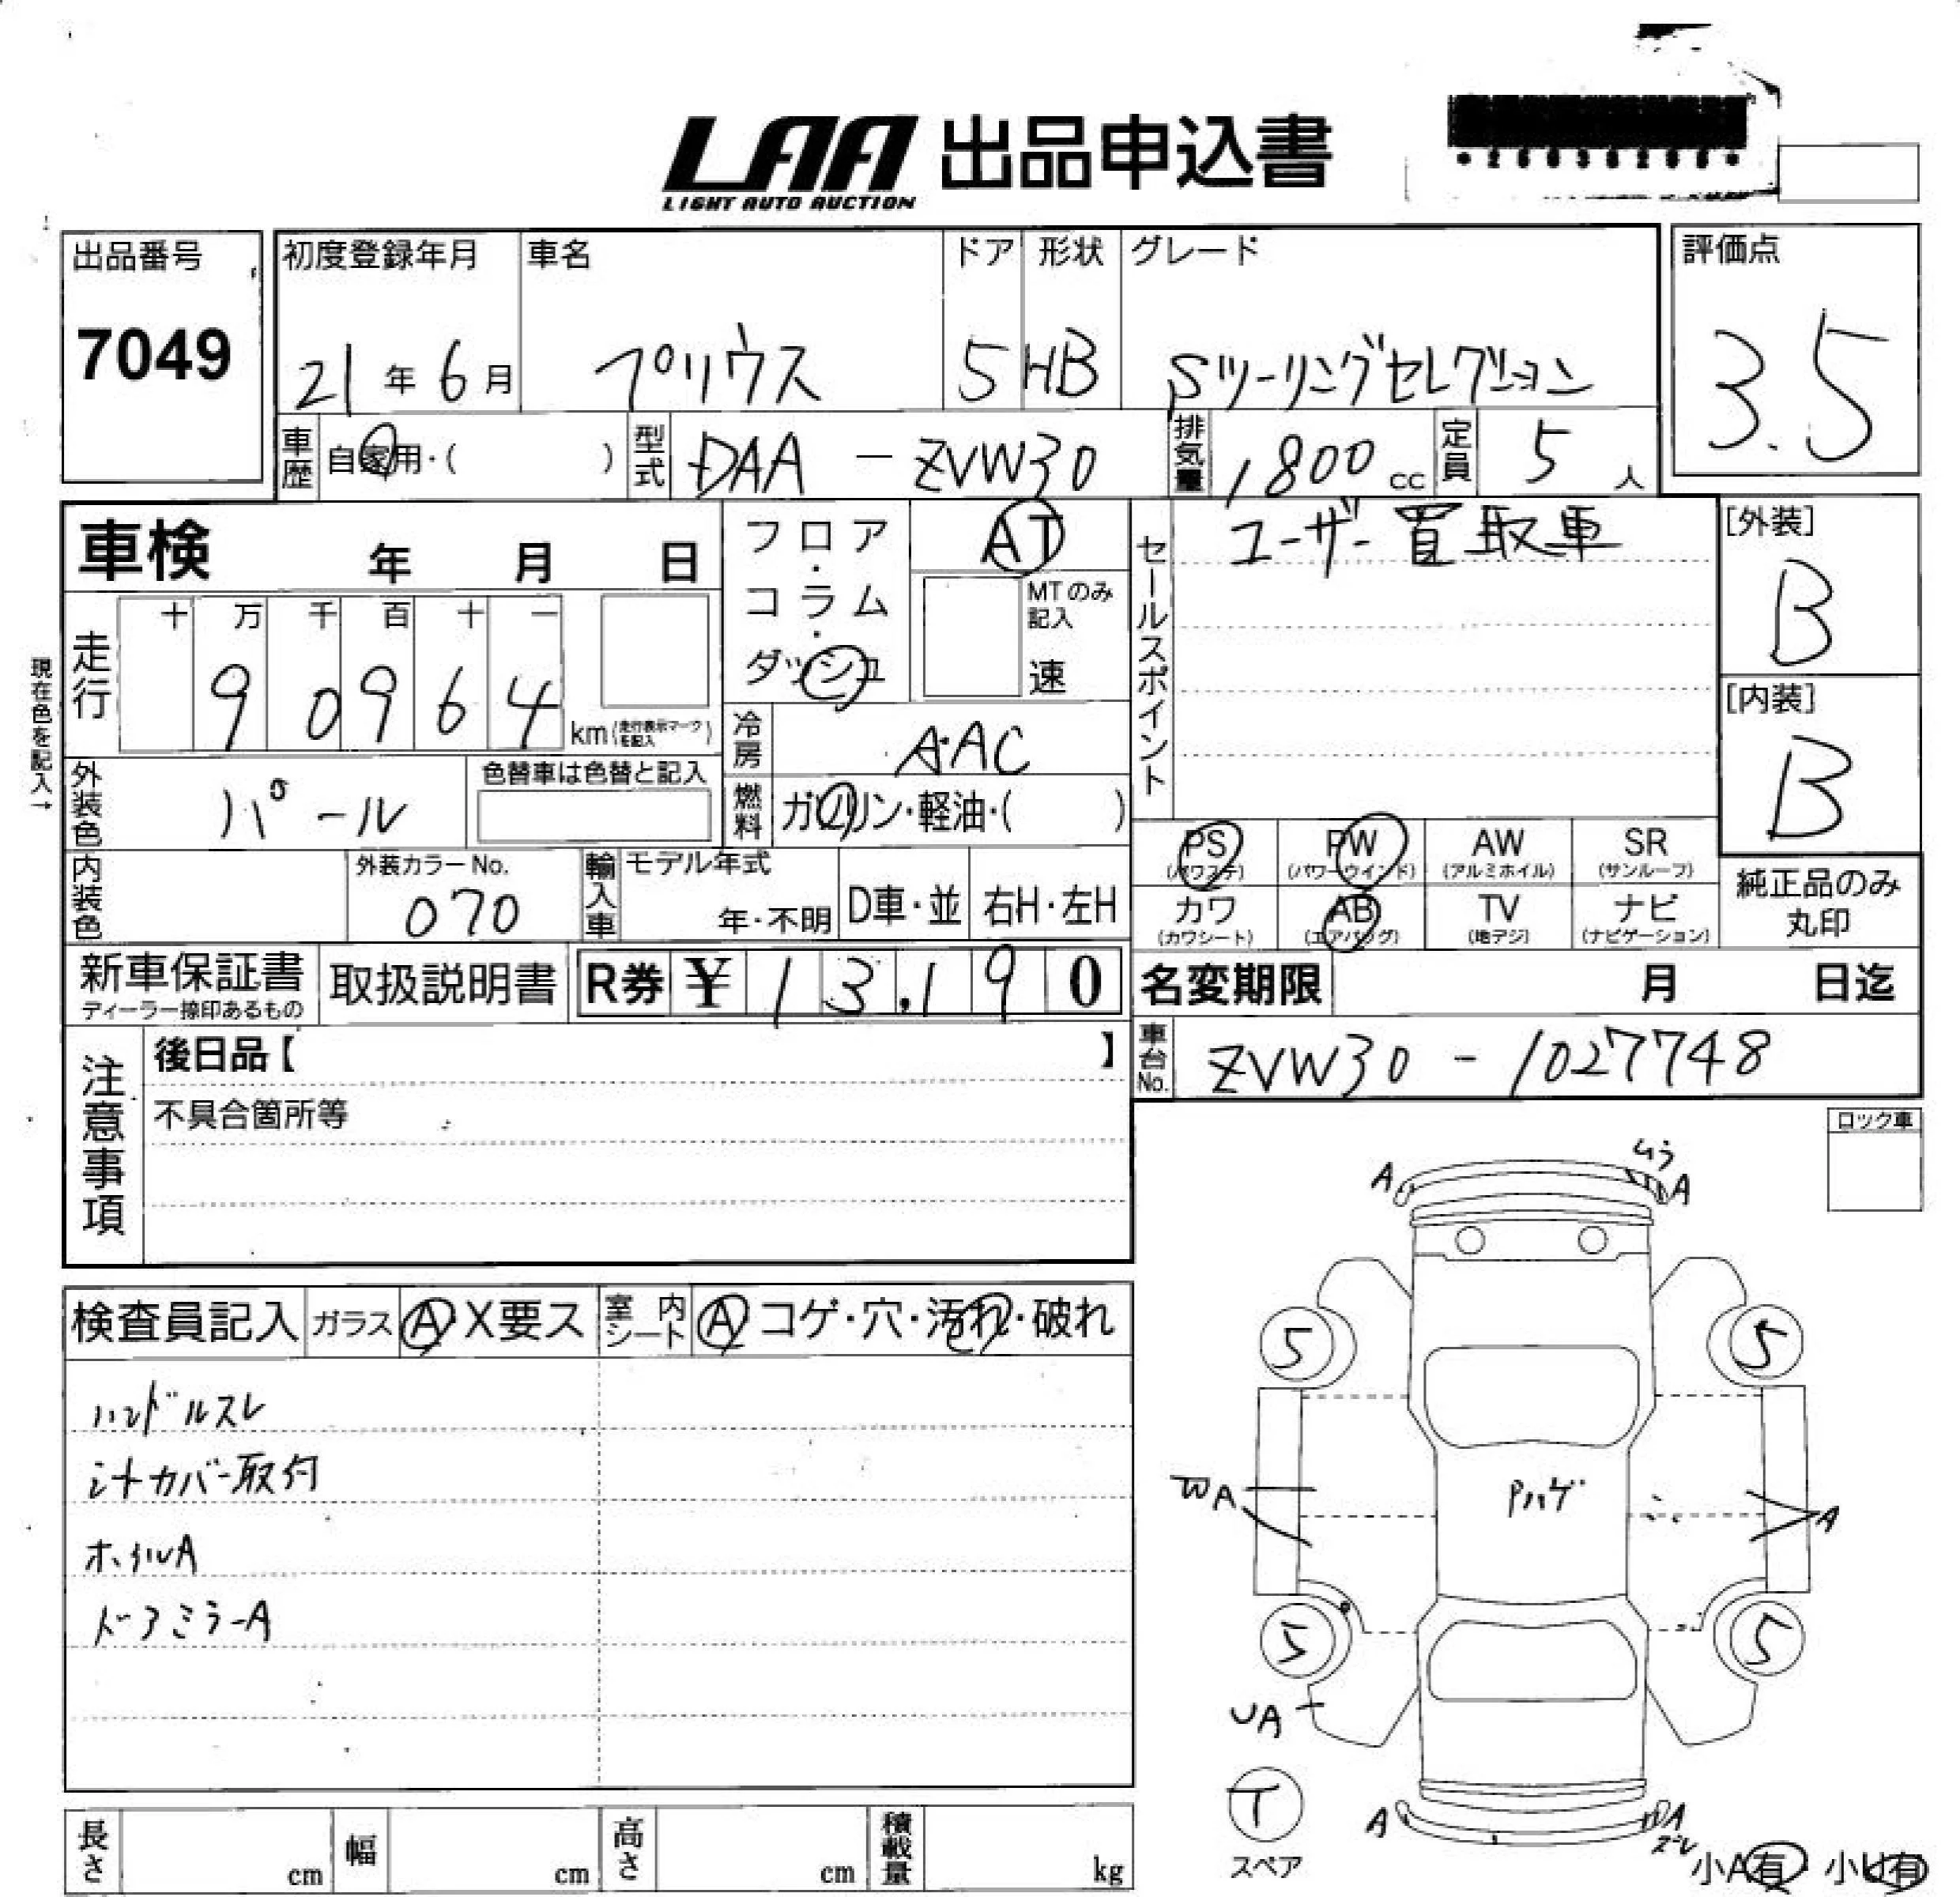 LAA 出品申込書
LIGHT AUTO AUCTION
出品番号
7049
初度登録年月
21年6月
車名
プリウス
ドア
5
形状
HB
グレード
Sツーリングセレクション
評価点
3.5
車歴 自家用・( )
型式 DAA-ZVW30
排気量 1800cc
定員 5人
車検 年 月 日
フロア・コラム・ダッシュ
AT
MTのみ記入
速
セールスポイント
ユーザー買取車
[外装]
B
[内装]
B
現在色を記入→
走行
十 万 千 百 十 一
9 0 9 6 4 km(走行表示マークを記入)
冷房 AAC
外装色 パール
色替車は色替と記入
燃料 ガソリン・軽油・( )
PS (パワステ)
PW (パワーウインド)
AW (アルミホイル)
SR (サンルーフ)
カワ (カワシート)
AB (エアバッグ)
TV (地デジ)
ナビ (ナビゲーション)
純正品のみ丸印
内装色
外装カラーNo.
070
輸入車
モデル年式
年・不明
D車・並
右H・左H
新車保証書
ディーラー捺印あるもの
取扱説明書
R券 ¥ 13,190
名変期限 月 日迄
車台No. ZVW30-1027748
注意事項
後日品【 】
不具合箇所等
ロック車
検査員記入
ガラス A X要ス
室内シート A コゲ・穴・汚れ・破れ
ハンドルスレ
シートカバー取付
ホイルA
ドアミラーA
A
ムラ
A
5
5
WA
Pハゲ
A
5
5
UA
T
スペア
A
A
ズレ
小A有 小U有
長さ cm
幅 cm
高さ cm
積載量 kg